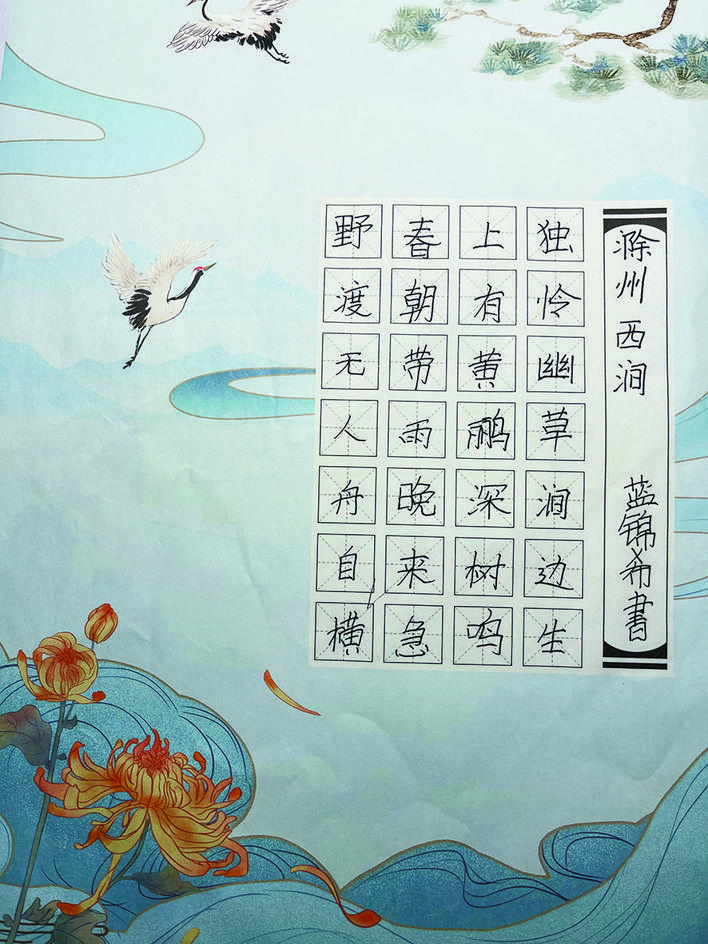 滁州西涧
蓝锦希書
独怜幽草涧边生
上有黄鹂深树鸣
春朝带雨晚来急
野渡无人舟自横